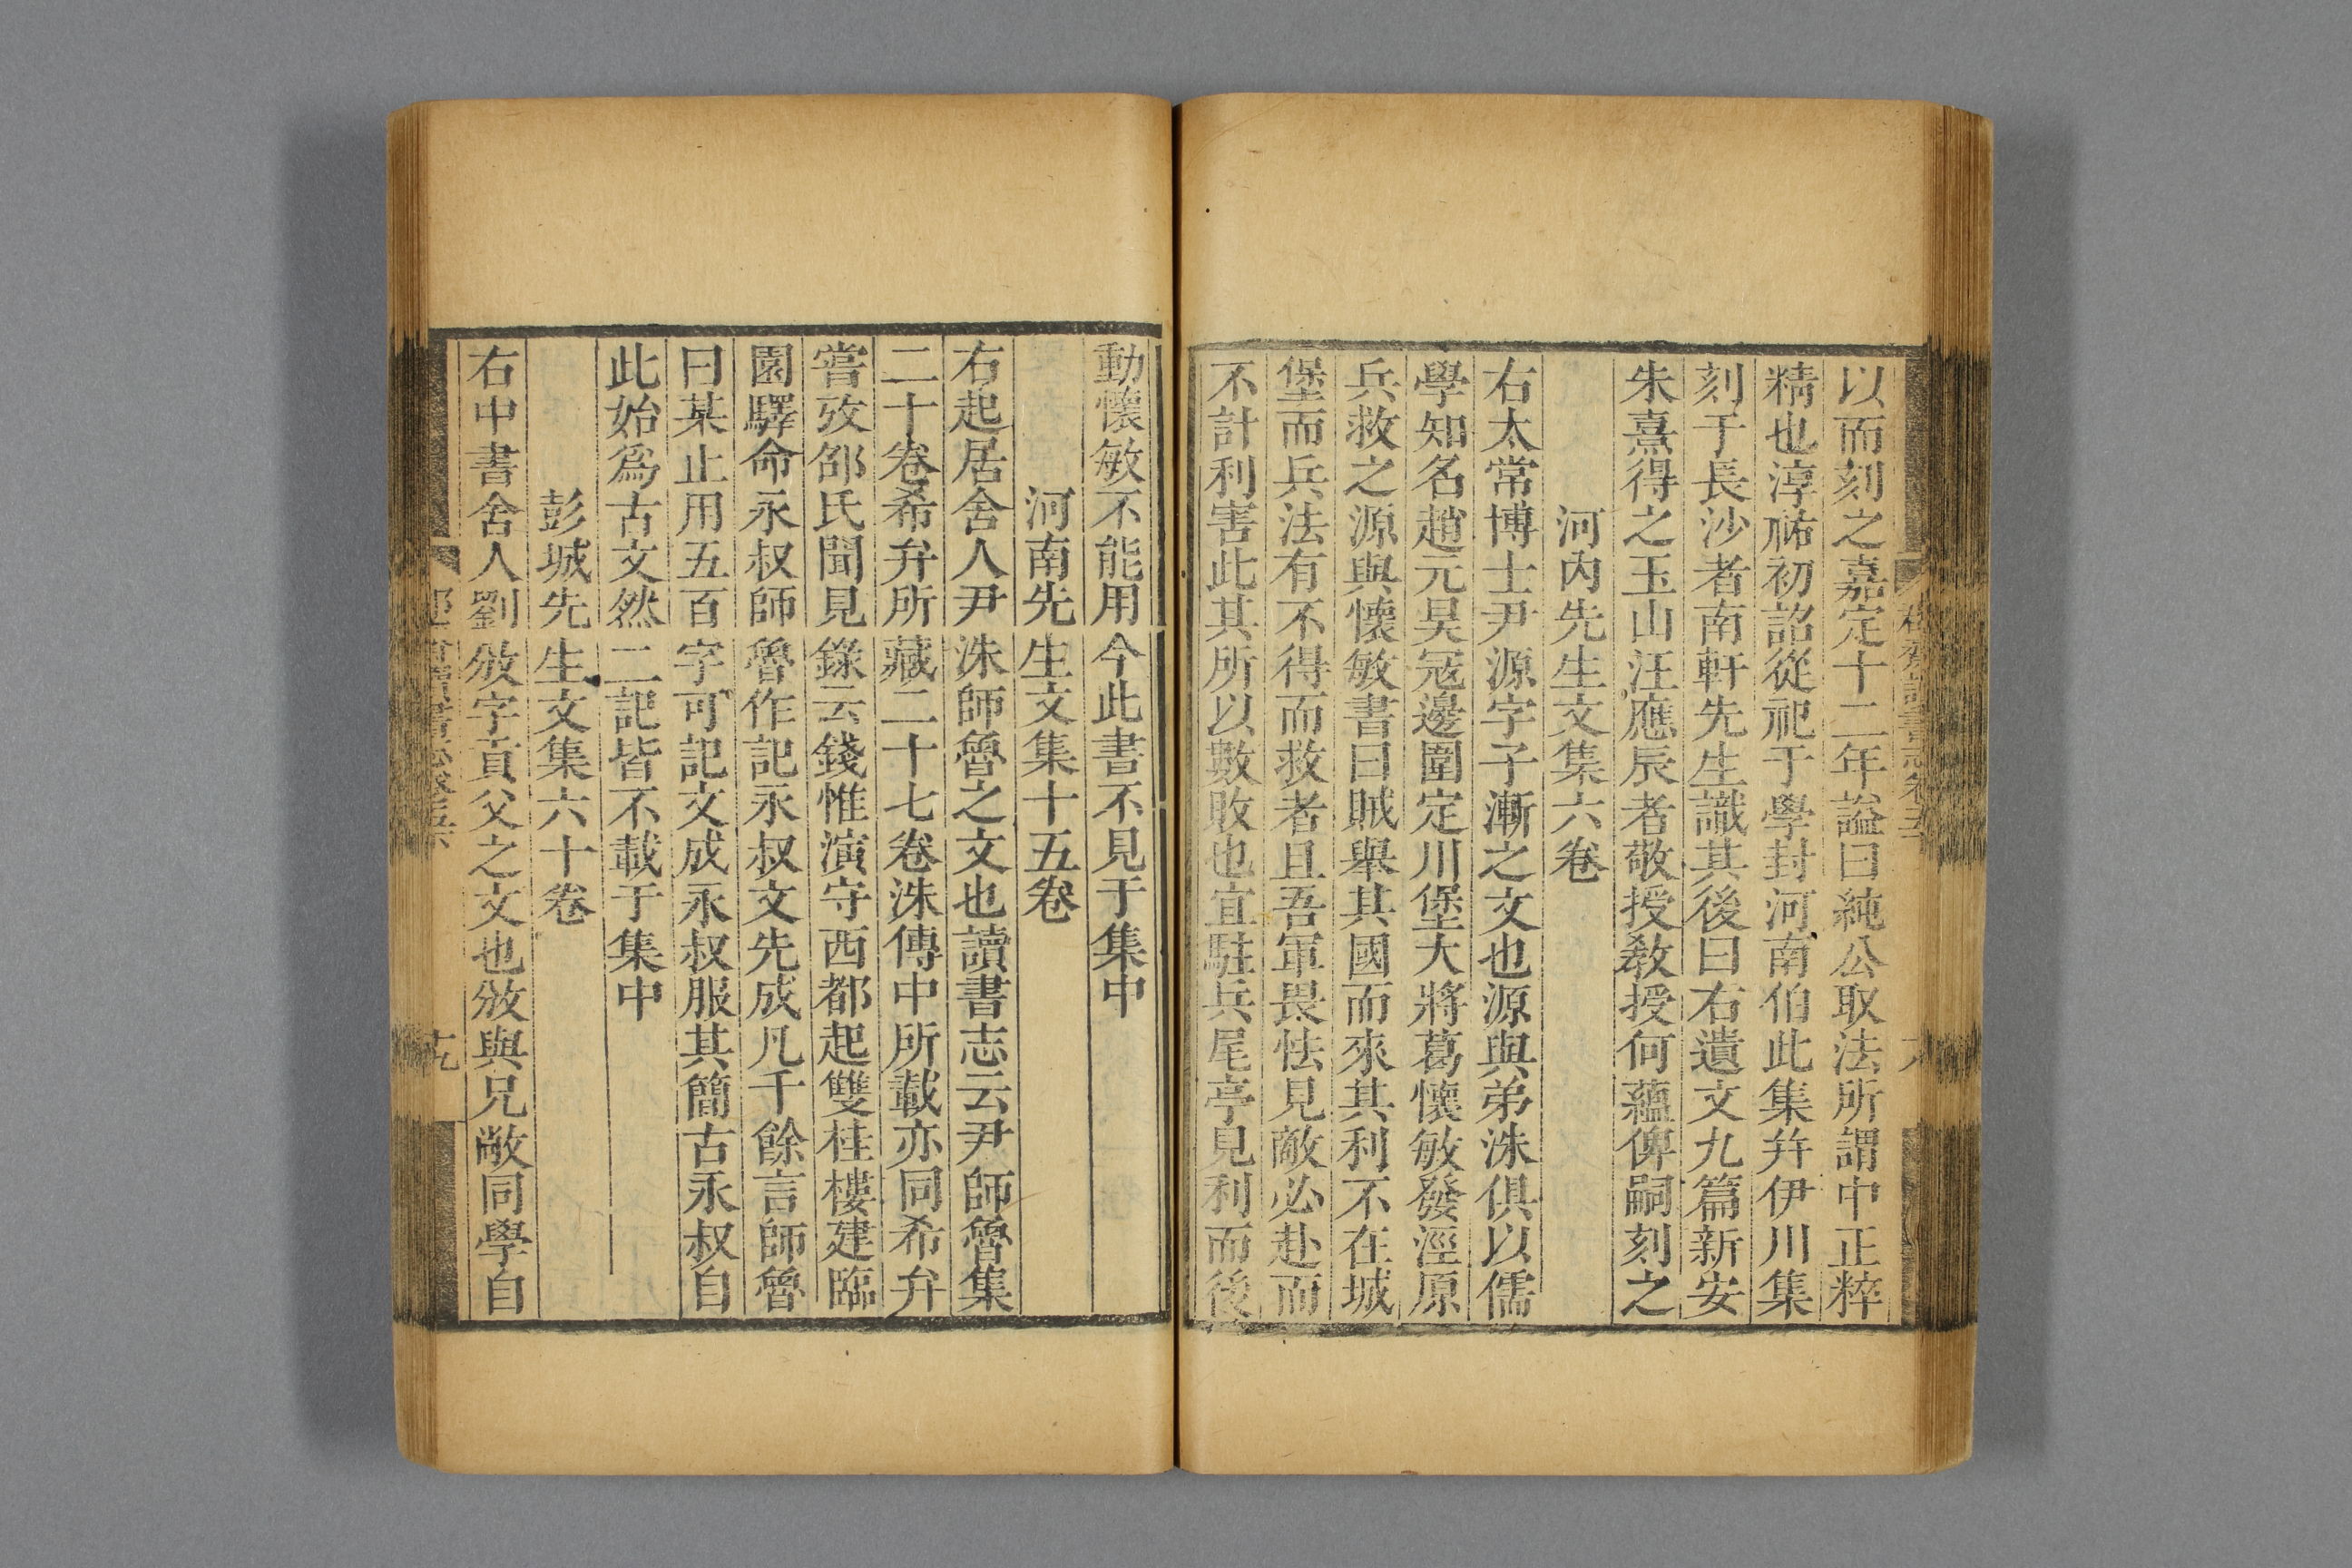 以而刻之嘉定十二年謚曰純公取法所謂中正粹
精也淳祐初詔從祀于學封河南伯此集并伊川集
刻于長沙者南軒先生識其後曰右遺文九篇新安
朱熹得之玉山汪應辰者敬授敎授何蘊俾嗣刻之
河內先生文集六卷
右太常博士尹源字子漸之文也源與弟洙俱以儒
學知名趙元昊冦邊圍定川堡大將葛懷敏發涇原
兵救之源與懷敏書曰賊舉其國而來其利不在城
堡而兵法有不得而救者且吾軍畏怯見敵必赴而
不計利害此其所以數敗也宜駐兵尾亭見利而後
動懷敏不能用今此書不見于集中
河南先生文集十五卷
右起居舍人尹洙師魯之文也讀書志云尹師魯集
二十卷希弁所藏二十七卷洙傳中所載亦同希弁
嘗攷邵氏聞見錄云錢惟演守西都起雙桂樓建臨
園驛命永叔師魯作記永叔文先成凡千餘言師魯
曰某止用五百字可記文成永叔服其簡古永叔自
此始爲古文然二記皆不載于集中
彭城先生文集六十卷
右中書舍人劉攽字貢父之文也攽與兄敞同學自